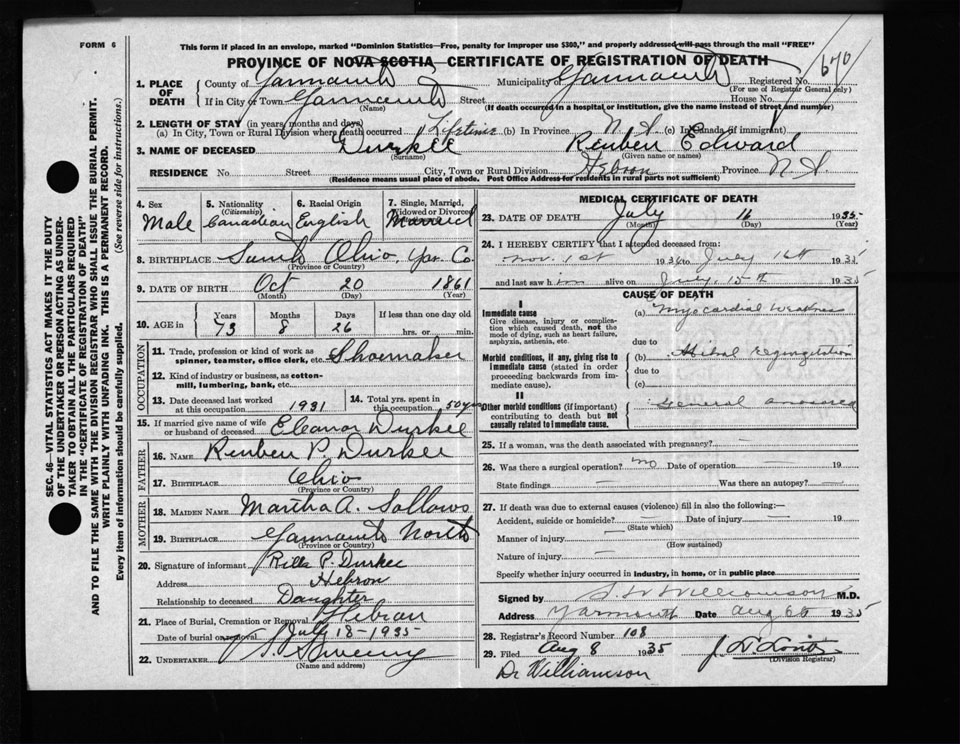 FORM 6
This form if placed in an envelope, marked "Dominion Statistics—Free, penalty for improper use $300," and properly addressed will pass through the mail "FREE"
PROVINCE OF NOVA SCOTIA—CERTIFICATE OF REGISTRATION OF DEATH
670
1. PLACE OF DEATH
County of Yarmouth Municipality of Yarmouth Registered No.
(For use of Registrar General only)
If in City or Town Yarmouth Street House No.
(Name) (If death occurred in a hospital or institution, give the name instead of street and number)
2. LENGTH OF STAY (in years, months and days)
(a) In City, Town or Rural Division where death occurred Lifetime (b) In Province N.S. (c) In Canada (if immigrant)
3. NAME OF DECEASED Durkee Reuben Edward
(Surname) (Given name or names)
RESIDENCE No. Street City, Town or Rural Division Hebron Province N.S.
(Residence means usual place of abode. Post Office Address for residents in rural parts not sufficient)
SEC. 46—VITAL STATISTICS ACT MAKES IT THE DUTY
OF THE UNDERTAKER OR PERSON ACTING AS UNDER-
TAKER TO OBTAIN ALL THE PARTICULARS REQUIRED
IN THE "CERTIFICATE OF REGISTRATION OF DEATH"
AND TO FILE THE SAME WITH THE DIVISION REGISTRAR WHO SHALL ISSUE THE BURIAL PERMIT.
WRITE PLAINLY WITH UNFADING INK. THIS IS A PERMANENT RECORD.
Every item of information should be carefully supplied. (See reverse side for instructions.)
4. Sex 5. Nationality (Citizenship) 6. Racial Origin 7. Single, Married, Widowed or Divorced
Male Canadian English Married
8. BIRTHPLACE South Ohio, Yar. Co.
(Province or Country)
9. DATE OF BIRTH Oct 20 1861
(Month) (Day) (Year)
10. AGE in Years Months Days If less than one day old
73 8 26 hrs. or min.
OCCUPATION
11. Trade, profession or kind of work as spinner, teamster, office clerk, etc. Shoemaker
12. Kind of industry or business, as cotton-mill, lumbering, bank, etc.
13. Date deceased last worked at this occupation 1931 14. Total yrs. spent in this occupation 50 yrs
15. If married give name of wife or husband of deceased Eleanor Durkee
FATHER
16. NAME Reuben P. Durkee
17. BIRTHPLACE Ohio
(Province or Country)
MOTHER
18. MAIDEN NAME Martha A. Sollows
19. BIRTHPLACE Yarmouth North
(Province or Country)
20. Signature of informant Rilla P. Durkee
Address Hebron
Relationship to deceased Daughter
21. Place of Burial, Cremation or Removal Hebron
Date of burial or removal July 18-1935
22. UNDERTAKER Sweeny
(Name and address)
MEDICAL CERTIFICATE OF DEATH
23. DATE OF DEATH July 16 1935
(Month) (Day) (Year)
24. I HEREBY CERTIFY that I attended deceased from:
Nov. 1st 1934 to July 16th 1935
and last saw him alive on July 15th 1935
CAUSE OF DEATH
I
Immediate cause
Give disease, injury or complication which caused death, not the mode of dying, such as heart failure, asphyxia, asthenia, etc.
(a) Myocardial Weakness
due to
Morbid conditions, if any, giving rise to immediate cause (stated in order proceeding backwards from immediate cause).
(b) Mitral regurgitation
due to
(c)
II
Other morbid conditions (if important) contributing to death but not causally related to immediate cause.
General anasarca
25. If a woman, was the death associated with pregnancy? —
26. Was there a surgical operation? no Date of operation 19
State findings — Was there an autopsy? —
27. If death was due to external causes (violence) fill in also the following:—
Accident, suicide or homicide? — Date of injury — 19
(State which)
Manner of injury —
(How sustained)
Nature of injury —
Specify whether injury occurred in industry, in home, or in public place
Signed by Williamson M.D.
Address Yarmouth Date Aug 6th 1935
28. Registrar's Record Number 108
29. Filed Aug 8 1935
(Division Registrar)
Dr Williamson